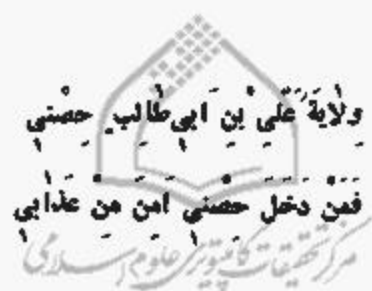 ولایة عَلیِ بنِ اَبی‌طالِب حِصْنی
فَمَنْ دَخَلَ حِصْنی اَمِنَ مِنْ عَذابی
مرکز تحقیقات کامپیوتری علوم اسلامی